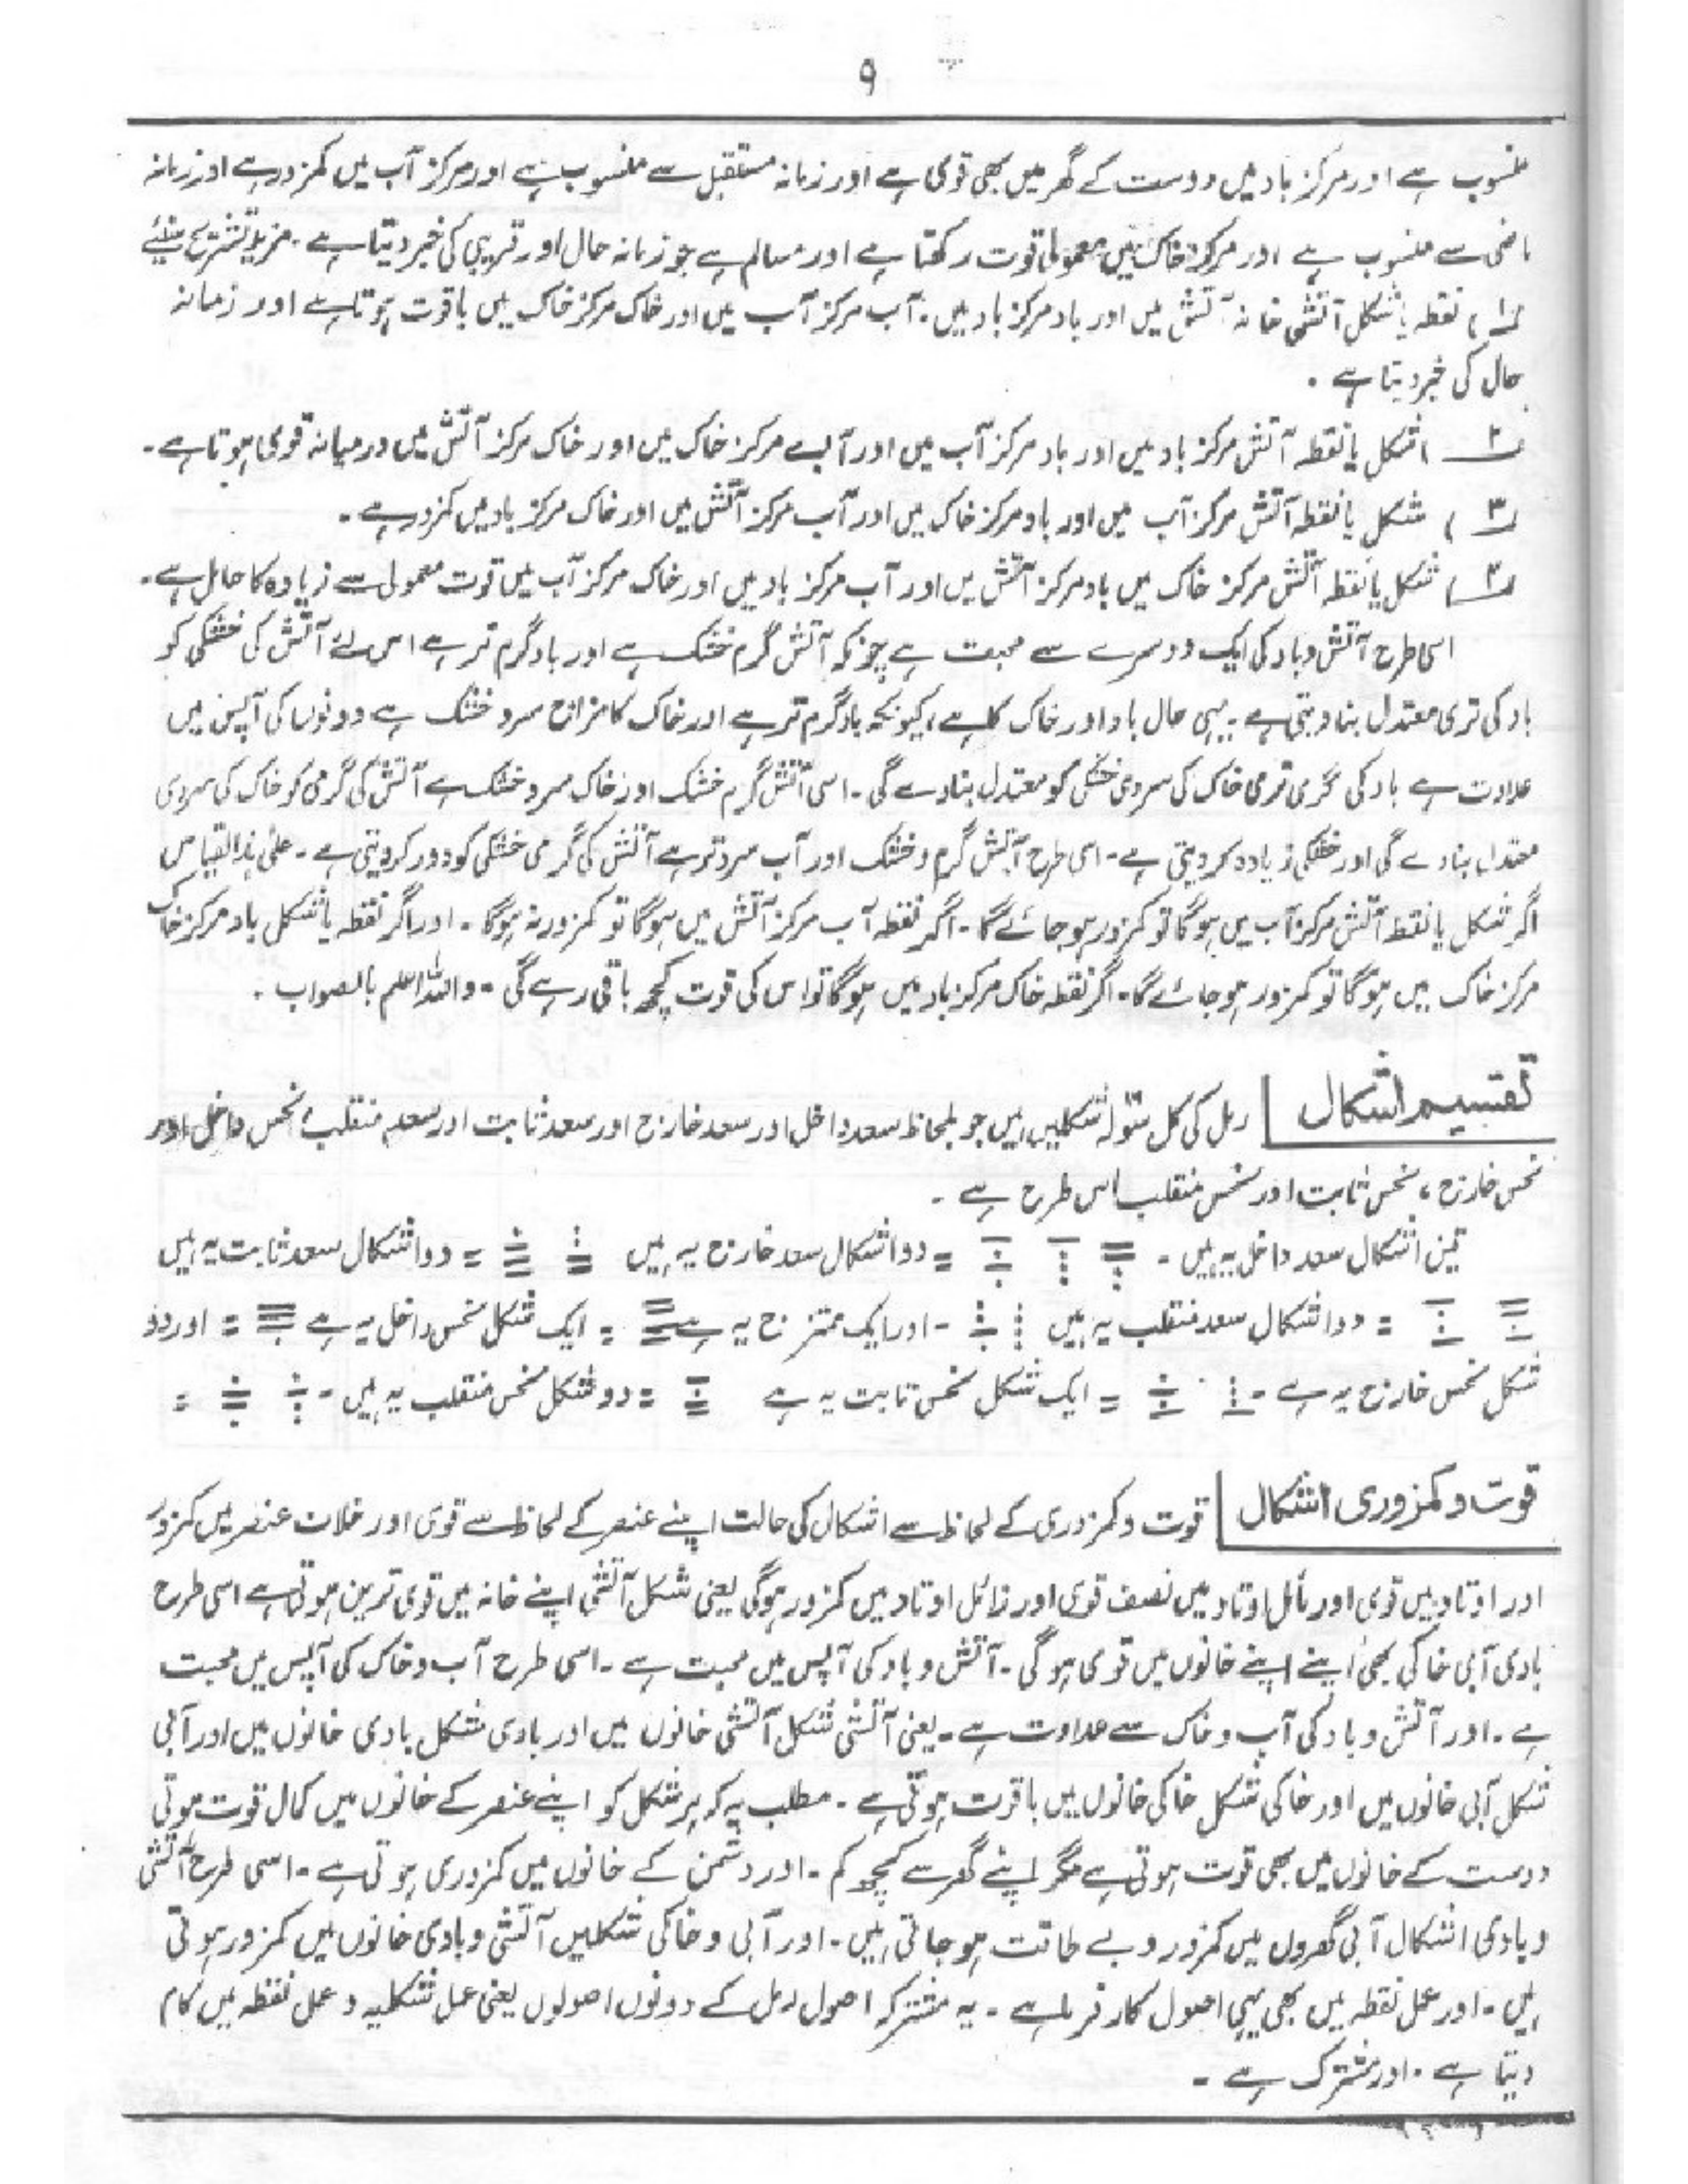 ۹
منسوب ہے اور مرکز باد میں دوست کے گھر میں بھی قوی ہے اور زمانہ مستقبل سے منسوب ہے اور مرکز آب میں کمزور ہے اور زمانہ
ماضی سے منسوب ہے اور مرکز خاک میں معمولی قوت رکھتا ہے اور مسالم ہے جو زمانہ حال اور قریبی کی خبر دیتا ہے ۔ مزید تشریح سنئیے
۱) نقطہ یا شکل آتشی خانہ آتش میں اور باد مرکز باد میں ۔ آب مرکز آب میں اور خاک مرکز خاک میں باقوت ہوتا ہے اور زمانہ
حال کی خبر دیتا ہے ۔
۲) شکل یا نقطہ آتش مرکز باد میں اور باد مرکز آب میں اور آب مرکز خاک میں اور خاک مرکز آتش میں درمیانہ قوی ہوتا ہے ۔
۳) شکل یا نقطہ آتش مرکز آب میں اور باد مرکز خاک میں اور آب مرکز آتش میں اور خاک مرکز باد میں کمزور ہے ۔
۴) شکل یا نقطہ آتش مرکز خاک میں باد مرکز آتش میں اور آب مرکز باد میں اور خاک مرکز آب میں قوت معمولی سے زیادہ کا حامل ہے ۔
اسی طرح آتش و باد کی ایک دوسرے سے محبت ہے چونکہ آتش گرم خشک ہے اور باد گرم تر ہے اس لئے آتش کی خشکی کو
باد کی تری معتدل بنا دیتی ہے ۔ یہی حال باد اور خاک کا ہے، کیونکہ باد گرم تر ہے اور خاک کا مزاج سرد خشک ہے دونوں کی آپس میں
عداوت ہے باد کی گرمی تری خاک کی سردی خشکی کو معتدل بنا دے گی ۔ اسی آتش گرم خشک اور خاک سرد خشک ہے آتش کی گرمی کو خاک کی سردی
معتدل بنا دے گی اور خشکی زیادہ کر دیتی ہے ۔ اسی طرح آتش گرم و خشک اور آب سرد تر ہے آتش کی گرمی خشکی کو دور کر دیتی ہے ۔ علیٰ ہذالقیاس
اگر شکل یا نقطہ آتش مرکز آب میں ہو گا تو کمزور ہو جائے گا ۔ اگر نقطہ آب مرکز آتش میں ہو گا تو کمزور نہ ہوگا ۔ اور اگر نقطہ یا شکل باد مرکز خاک
مرکز خاک میں ہو گا تو کمزور ہو جائے گا ۔ اگر نقطہ خاک مرکز باد میں ہو گا تو اس کی قوت کچھ باقی رہے گی ۔ واللہ اعلم بالصواب ۔
تقسیم اشکال رمل کی کل سولہ شکلیں ہیں جو بلحاظ سعد داخل اور سعد خارج اور سعد ثابت اور سعد منقلب نحس داخل اور
نحس خارج، نحس ثابت اور نحس منقلب اس طرح ہے ۔
تین اشکال سعد داخل یہ ہیں ۔ = دو اشکال سعد خارج یہ ہیں = دو اشکال سعد ثابت یہ ہیں
= دو اشکال سعد منقلب یہ ہیں ۔ اور ایک ممتزج یہ ہے = ایک شکل نحس داخل یہ ہے = اور دو
شکل نحس خارج یہ ہے ۔ = ایک شکل نحس ثابت یہ ہے = دو شکل نحس منقلب یہ ہیں ۔ =
قوت و کمزوری اشکال قوت و کمزوری کے لحاظ سے اشکال کی حالت اپنے عنصر کے لحاظ سے قوی اور خلاف عنصر میں کمزور
اور اوتاد میں قوی اور مائل اوتاد میں نصف قوی اور زائل اوتاد میں کمزور ہوگی یعنی شکل آتشی اپنے خانہ میں قوی ترین ہوتی ہے اسی طرح
بادی آبی خاکی بھی اپنے اپنے خانوں میں قوی ہو گی ۔ آتش و باد کی آپس میں محبت ہے ۔ اسی طرح آب و خاک کی آپس میں محبت
ہے ۔ اور آتش و باد کی آب و خاک سے عداوت ہے ۔ یعنی آتشی شکل آتشی خانوں میں اور بادی شکل بادی خانوں میں اور آبی
شکل آبی خانوں میں اور خاکی شکل خاکی خانوں میں باقوت ہوتی ہے ۔ مطلب یہ کہ ہر شکل کو اپنے عنصر کے خانوں میں کمال قوت ہوتی
دوست کے خانوں میں بھی قوت ہوتی ہے مگر اپنے گھر سے کچھ کم ۔ اور دشمن کے خانوں میں کمزوری ہوتی ہے ۔ اسی طرح آتشی
و بادی اشکال آبی گھروں میں کمزور و بے طاقت ہو جاتی ہیں ۔ اور آبی و خاکی شکلیں آتشی و بادی خانوں میں کمزور ہوتی
ہیں ۔ اور عمل نقطہ میں بھی یہی اصول کارفرما ہے ۔ یہ مشترکہ اصول رمل کے دونوں اصولوں یعنی عمل شکلیہ و عمل نقطہ میں کام
دیتا ہے ۔ اور مشترک ہے ۔